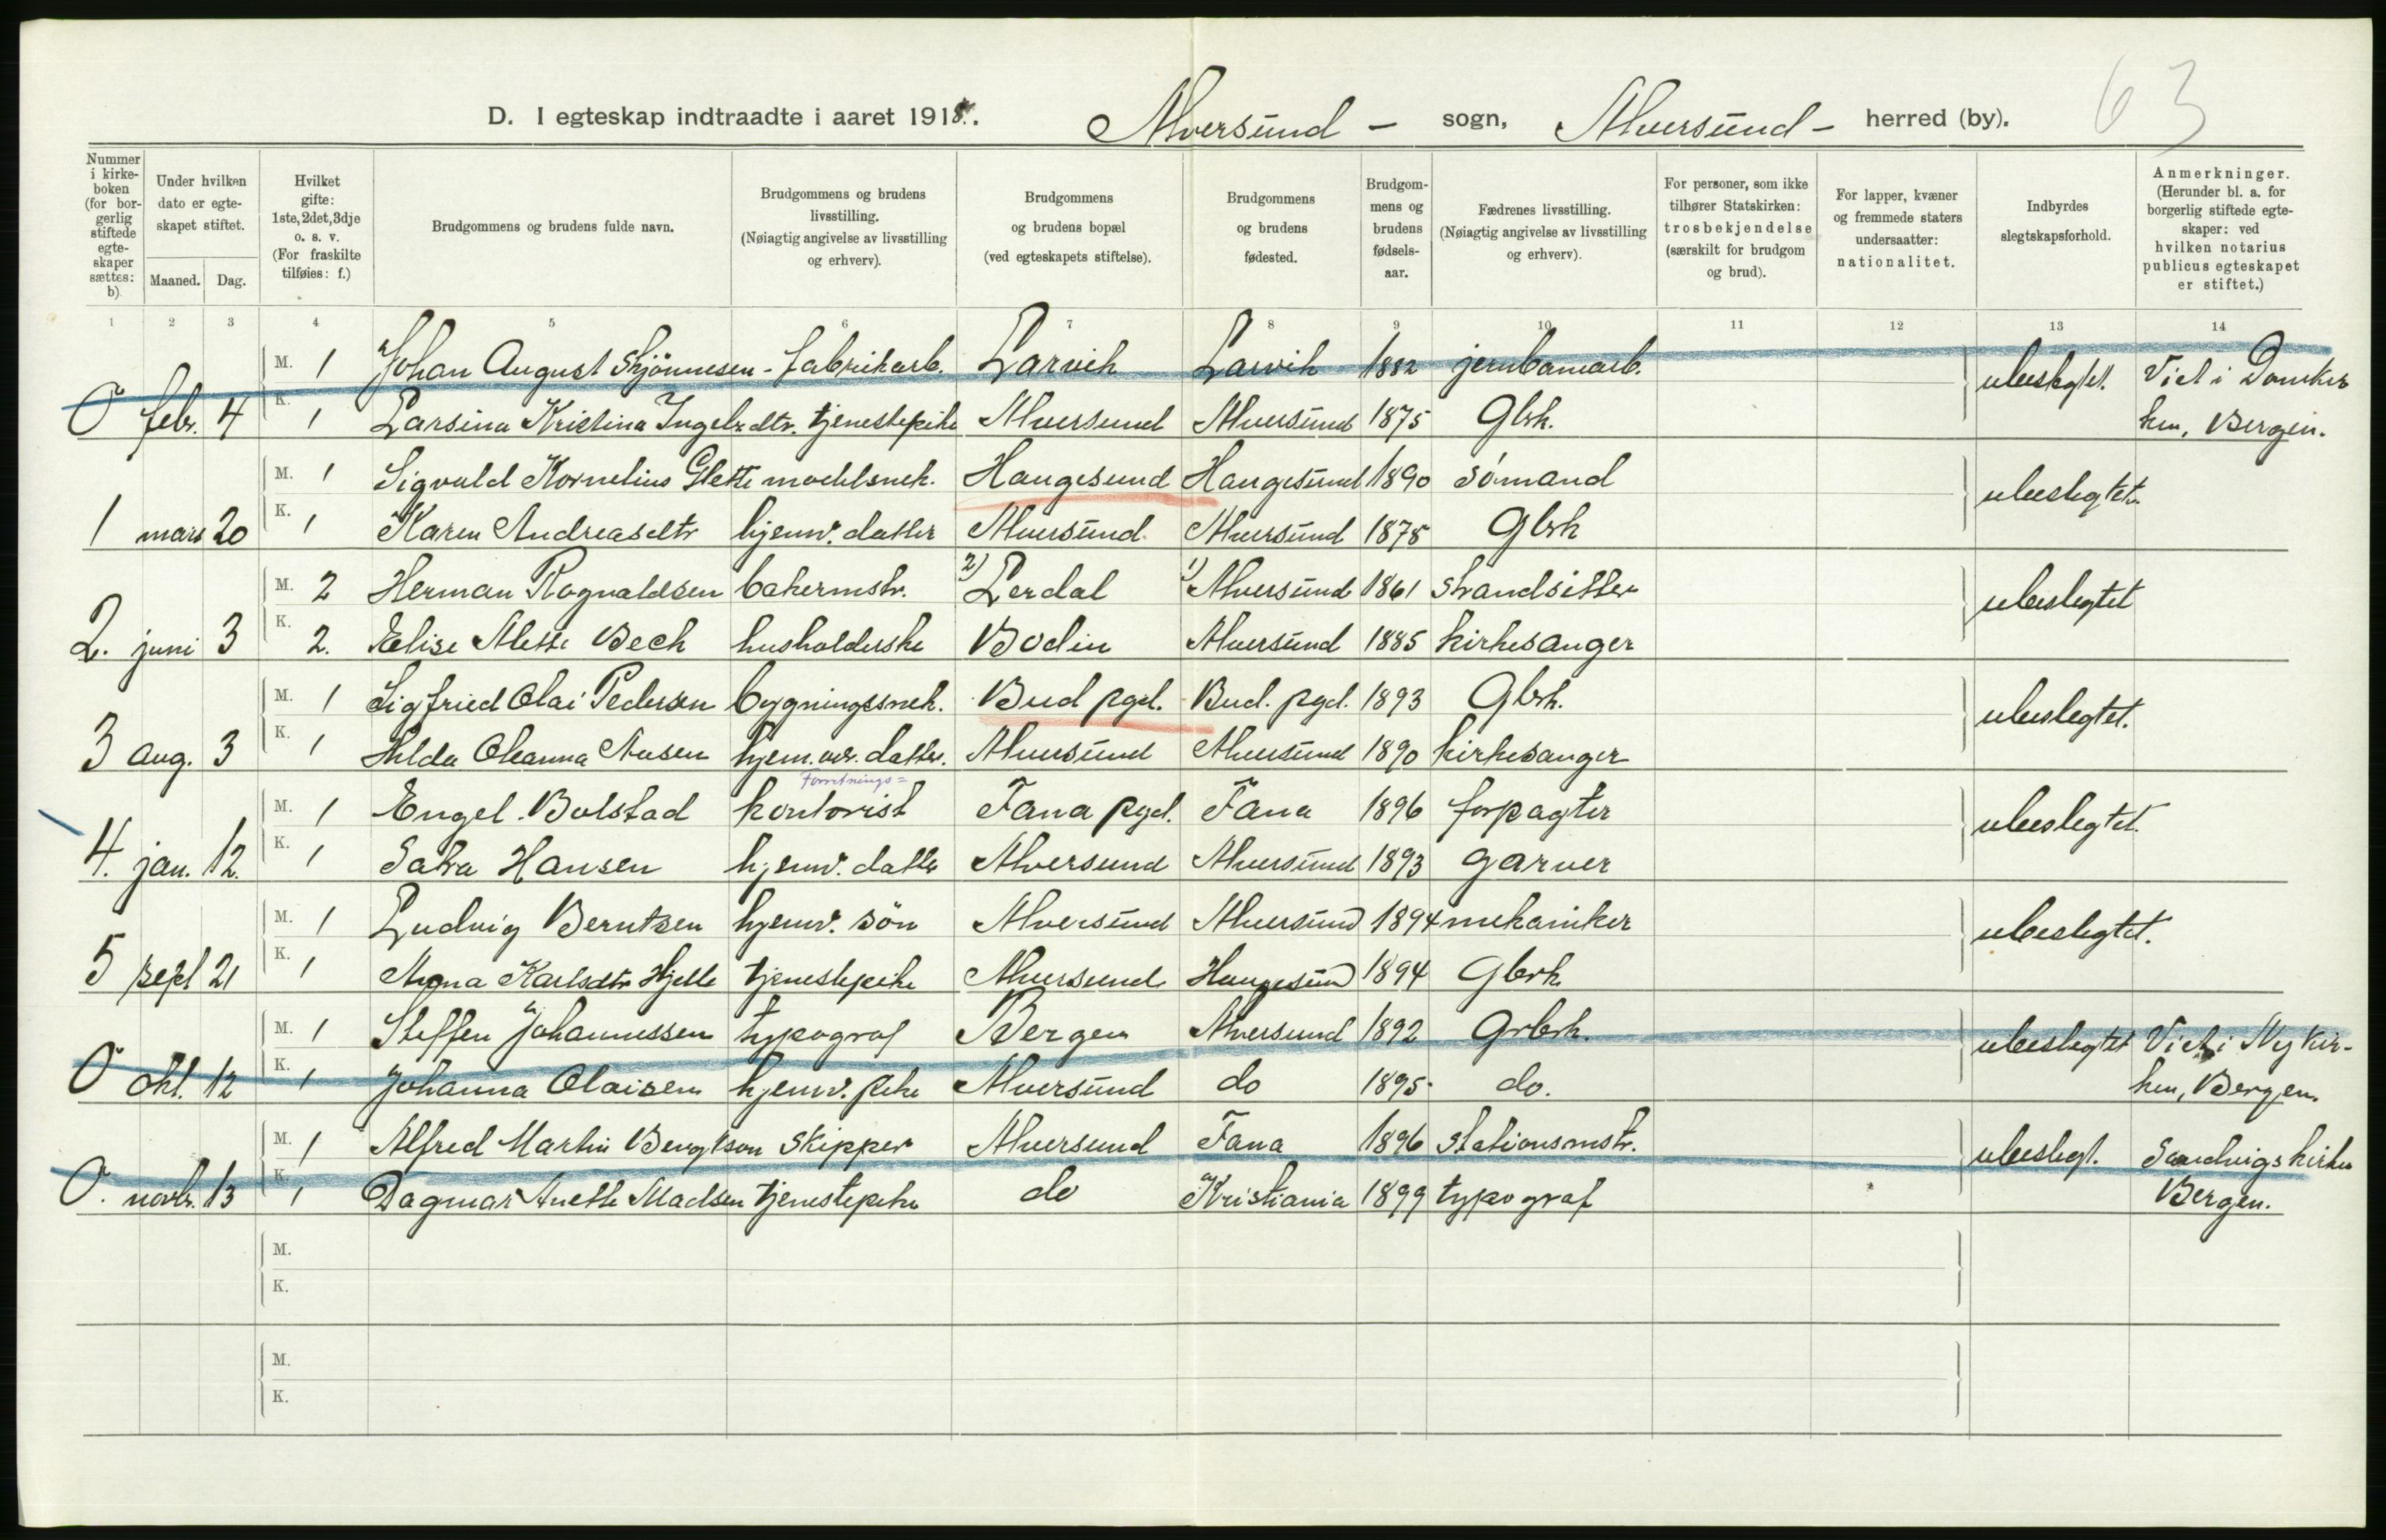 63
D. I egteskap indtraadte i aaret 1918. Alversund - sogn, Alversund - herred (by).
Nummer i kirkeboken (for borgerlig stiftede egteskaper sættes: b). | Under hvilken dato er egteskapet stiftet. Maaned. Dag. | Hvilket gifte: 1ste, 2det, 3dje o. s. v. (For fraskilte tilføies: f.) | Brudgommens og brudens fulde navn. | Brudgommens og brudens livsstilling. (Nøiagtig angivelse av livsstilling og erhverv). | Brudgommens og brudens bopæl (ved egteskapets stiftelse). | Brudgommens og brudens fødested. | Brudgommens og brudens fødselsaar. | Fædrenes livsstilling. (Nøiagtig angivelse av livsstilling og erhverv). | For personer, som ikke tilhører Statskirken: trosbekjendelse (særskilt for brudgom og brud). | For lapper, kvæner og fremmede staters undersaatter: nationalitet. | Indbyrdes slegtskapsforhold. | Anmerkninger. (Herunder bl. a. for borgerlig stiftede egteskaper: ved hvilken notarius publicus egteskapet er stiftet.)
1 2 3 4 5 6 7 8 9 10 11 12 13 14
M. 1 Johan August Skjönnesen - fabrikarb. Larvik Larvik 1882 jernbanearb. ubeslegtet. Viet i Domkir
0 febr. 4 K. 1 Larsina Kristina Ingebr.dtr. tjenestepike Alversund Alversund 1875 Gbrk. ken, Bergen.
M. 1 Sigvald Kornelius Glette modelsnek. Haugesund Haugesund 1890 sömand ubeslegtet.
1 mars 20 K. 1 Karen Andreasdtr hjemv. datter Alversund Alversund 1878 Gbrk
M. 2 Herman Rognaldsen bakermstr. 2) Lerdal 1) Alversund 1861 strandsitter ubeslegtet
2. juni 3 K. 2. Elise Alette Bech husholderske Bodin Alversund 1885 kirkesanger
M. 1 Sigfried Olai Pedersen bygningssnek. Bud pgd. Bud. pgd. 1893 Gbrk. ubeslegtet.
3 aug. 3 K. 1 Hilda Oleanna Aasen hjem.vær. datter. Alversund Alversund 1890 kirkesanger
Forretnings=
M. 1 Engel. Bolstad kontorist Fana pgd. Fana 1896 forpagter ubeslegtet.
4. jan. 12. K. 1 Salra Hansen hjemv. datter Alversund Alversund 1893 garver
M. 1 Ludvig Berntsen hjemv. sön Alversund Alversund 1894 mekaniker ubeslegtet.
5 sept 21 K. 1 Magna Karlsdtr Hjelle tjenestepike Alversund Haugesund 1894 Gbrk
M. 1 Steffen Johannessen typograf Bergen Alversund 1892 Grbrk. ubeslegtet Viet i Nykir-
0 okt. 12 K. 1 Johanna Olaisen hjemv. pike Alversund do 1895 do. ken, Bergen.
M. 1 Alfred Martin Bengtson skipper Alversund Fana 1896 stationsmstr. ubeslegt. Sandvigskirken
0. novbr. 13 K. 1 Dagmar Anette Madsen tjenestepike do Kristiania 1899 typograf Bergen.
M.
K.
M.
K.